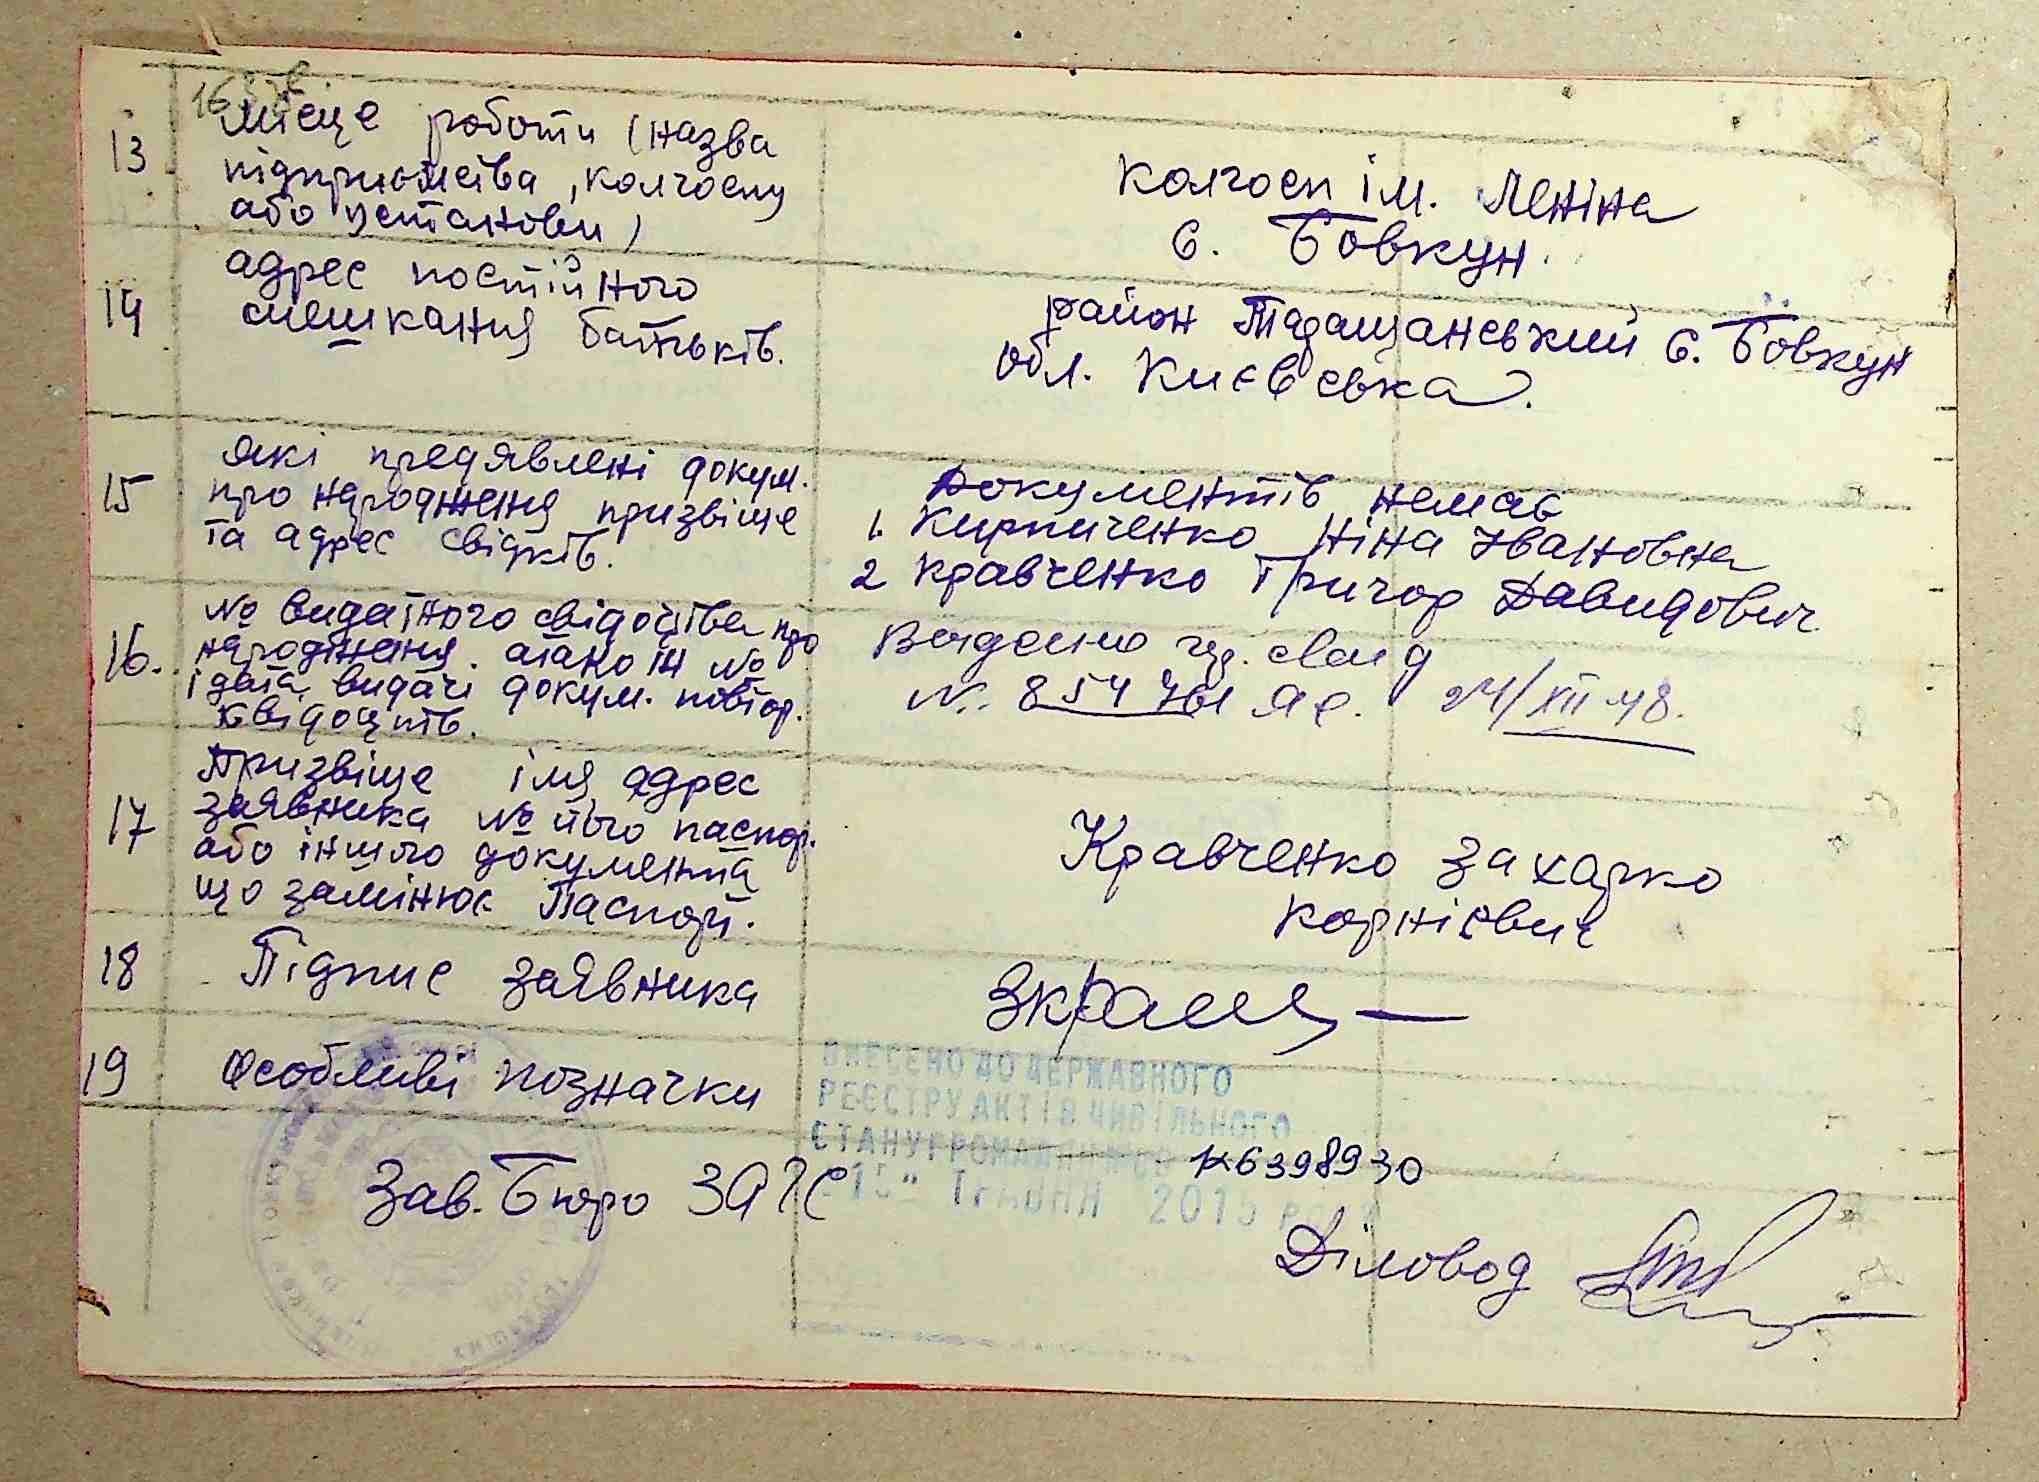 13 місце роботи (назва
підприємства, колгоспу
або установи)
колгосп ім. Леніна
с. Бовкун.
14 адрес постійного
мешкання батьків.
район Таращанський с. Бовкун
обл. Києвська.
15 які предявлені докум.
про народження призвіще
та адрес свідків.
Документів немає
1. Кирпиченко Ніна Івановна
2 Кравченко Григор Давидович
16. № видатного свідоцтва про
народження. також №
і дата видачі докум. повтор.
свідоцтв.
N. 854761 24/XII-48.
17 Призвіще імя адрес
заявника № його паспор.
або іншого документа
що замінює Паспорт.
Кравченко Захарко
Корнієвич
18 Підпис заявника
19 Особливі позначки
ВНЕСЕНО ДО ДЕРЖАВНОГО
РЕЄСТРУ АКТІВ ЦИВІЛЬНОГО
СТАНУ ГРОМАДЯН
6398930
"15" Травня 2015 року
Зав. Бюро ЗАГС
Діловод